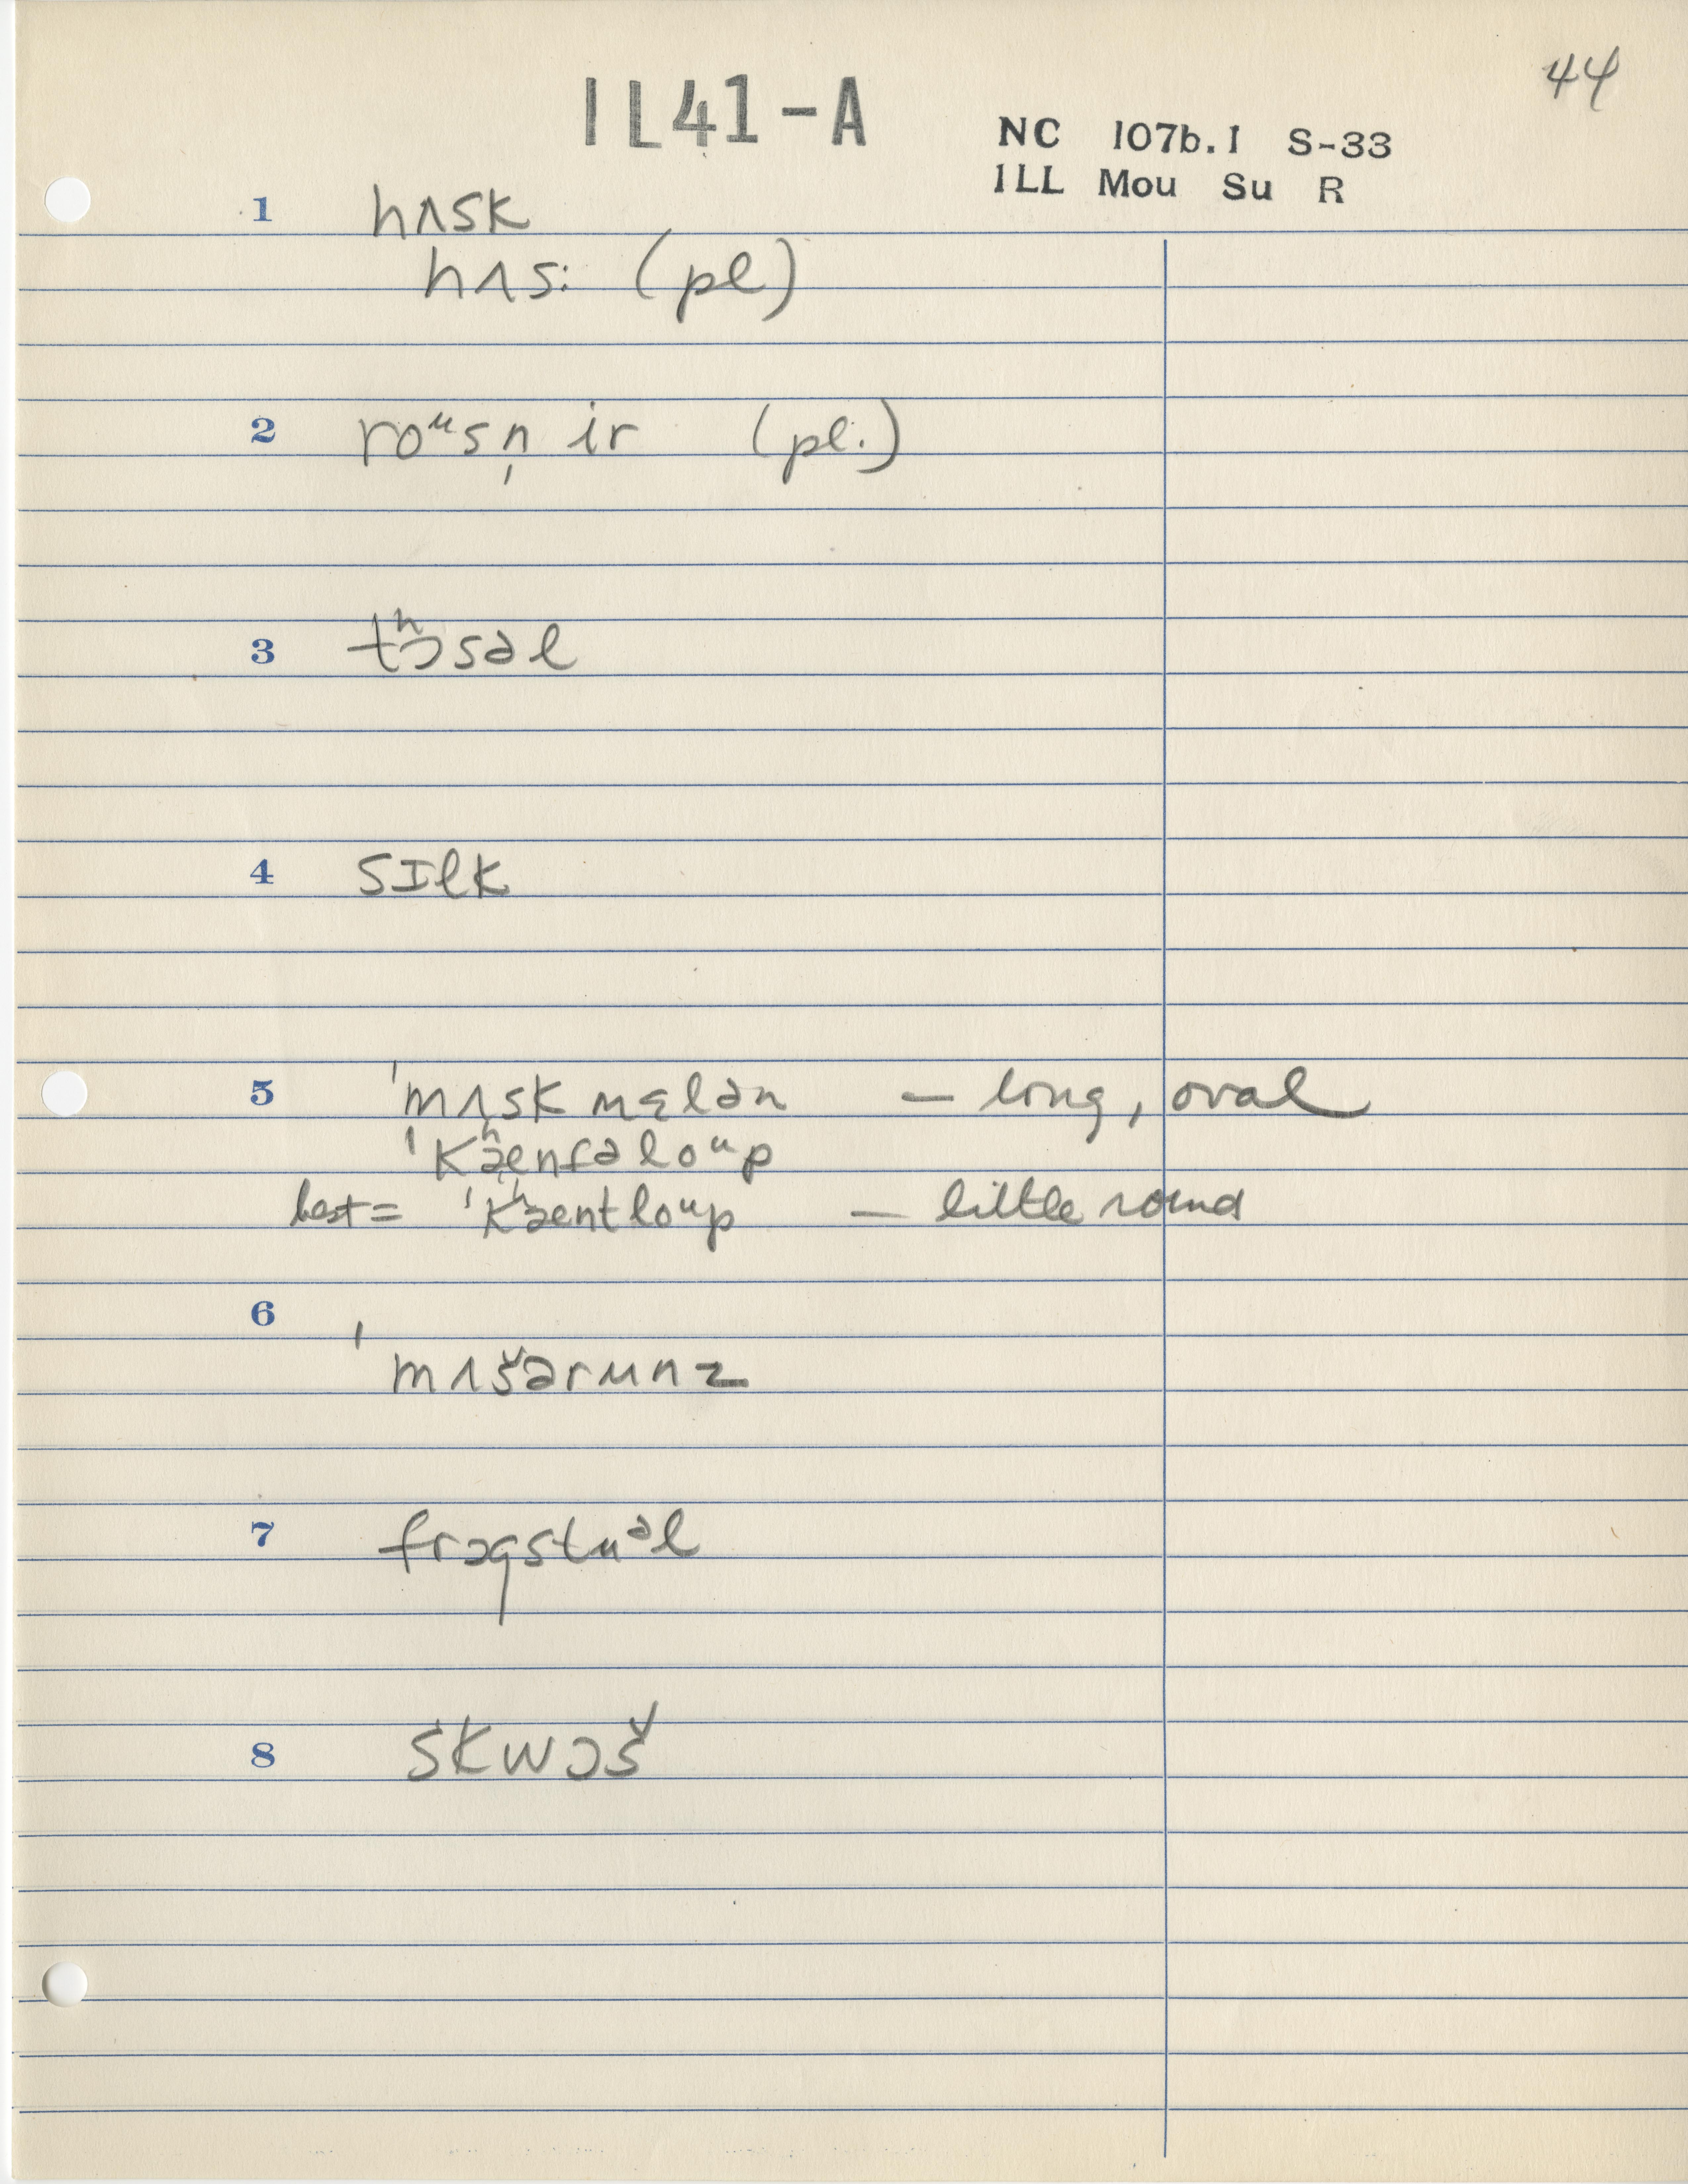 44
1L41-A
NC 107b.1 S-33
1LL Mou Su R
1 hʌsk
hʌs: (pl)
2 roᵘsn̩ ir (pl.)
3 tʰɔsəl
4 sɪlk
5 'mʌskmɛlən — long, oval
'kʰæntəloᵘp
best = 'kʰæntloᵘp — little round
6 'mʌšərunz
7 frɔgstuᵊl
8 skwɔš